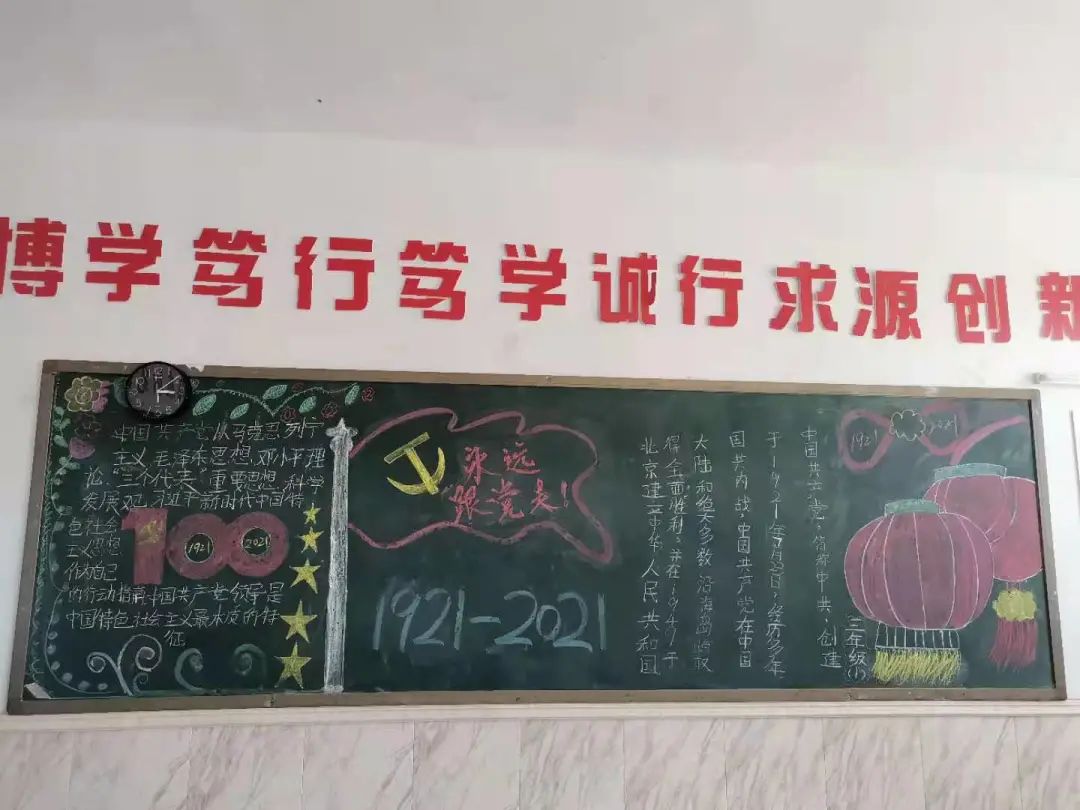 博学笃行笃学诚行求源创新
中国共产党从马克思列宁
主义毛泽东思想、邓小平理
论、"三个代表"重要思想、科学
发展观、习近平新时代中国特
色社会
主义思想
作为自己
的行动指南中国共产党领导是
中国特色社会主义最本质的特
征
100
1921
2021
永远
跟党走!
1921-2021
2021
中国共产党,简称中共,创建
于1921年7月23日,经历多年
国共内战,中国共产党在中国
大陆和绝大多数沿海岛屿取
得全面胜利。并在1949于
北京建立中华人民共和国
三年级(1)